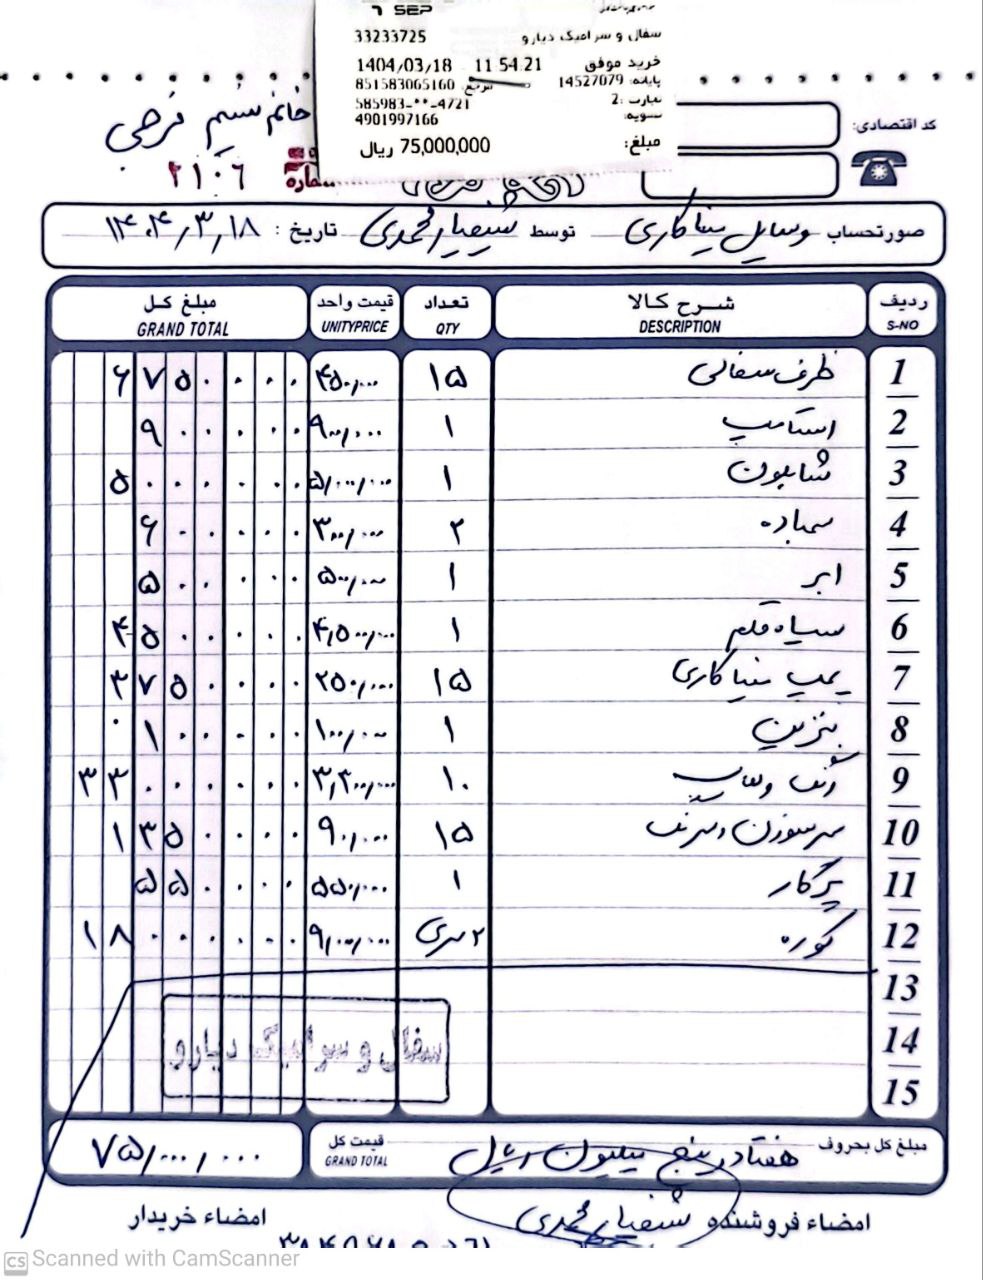 SEP
سفال و سرامیک دیارو 33233725
خرید موفق 11:54:21 1404/03/18
پایانه: 14527079 مرجع: 851583065160
تجارت 2: 585983-**-4721
4901997166
مبلغ: 75,000,000 ریال
کد اقتصادی:
خانم نسیم فرجی
شماره ۲۱۰۶
صورتحساب وسایل میناکاری توسط تاریخ: ۱۴۰۴/۳/۱۸
ردیف شرح کالا تعداد قیمت واحد مبلغ کل
S-NO DESCRIPTION QTY UNITYPRICE GRAND TOTAL
1 ظرف سفالی ۱۵ ۴۵۰/۰۰۰ ۶۷۵۰۰۰۰
2 استامپ ۱ ۹۰۰/۰۰۰ ۹۰۰۰۰۰
3 شابلون ۱ ۵/۰۰۰/۰۰۰ ۵۰۰۰۰۰۰
4 سمباده ۲ ۳۰۰/۰۰۰ ۶۰۰۰۰۰
5 ابر ۱ ۵۰۰/۰۰۰ ۵۰۰۰۰۰
6 سیاه قلم ۱ ۴,۵۰۰/۰۰۰ ۴۵۰۰۰۰۰
7 پمپ میناکاری ۱۵ ۲۵۰/۰۰۰ ۳۷۵۰۰۰۰
8 بنزین ۱ ۱۰۰/۰۰۰ ۱۰۰۰۰۰
9 رنگ ۱۰ ۳,۳۰۰/۰۰۰ ۳۳۰۰۰۰۰۰
10 سرسوزن و سرنگ ۱۵ ۹۰/۰۰۰ ۱۳۵۰۰۰۰
11 پرگار ۱ ۵۵۰/۰۰۰ ۵۵۰۰۰۰
12 کوره ۲ سری ۹/۰۰۰/۰۰۰ ۱۸۰۰۰۰۰۰
13
14
15
سفال و سرامیک دیارو
مبلغ کل بحروف هفتاد و پنج میلیون ریال قیمت کل ۷۵/۰۰۰/۰۰۰
GRAND TOTAL
امضاء فروشنده امضاء خریدار
CS Scanned with CamScanner